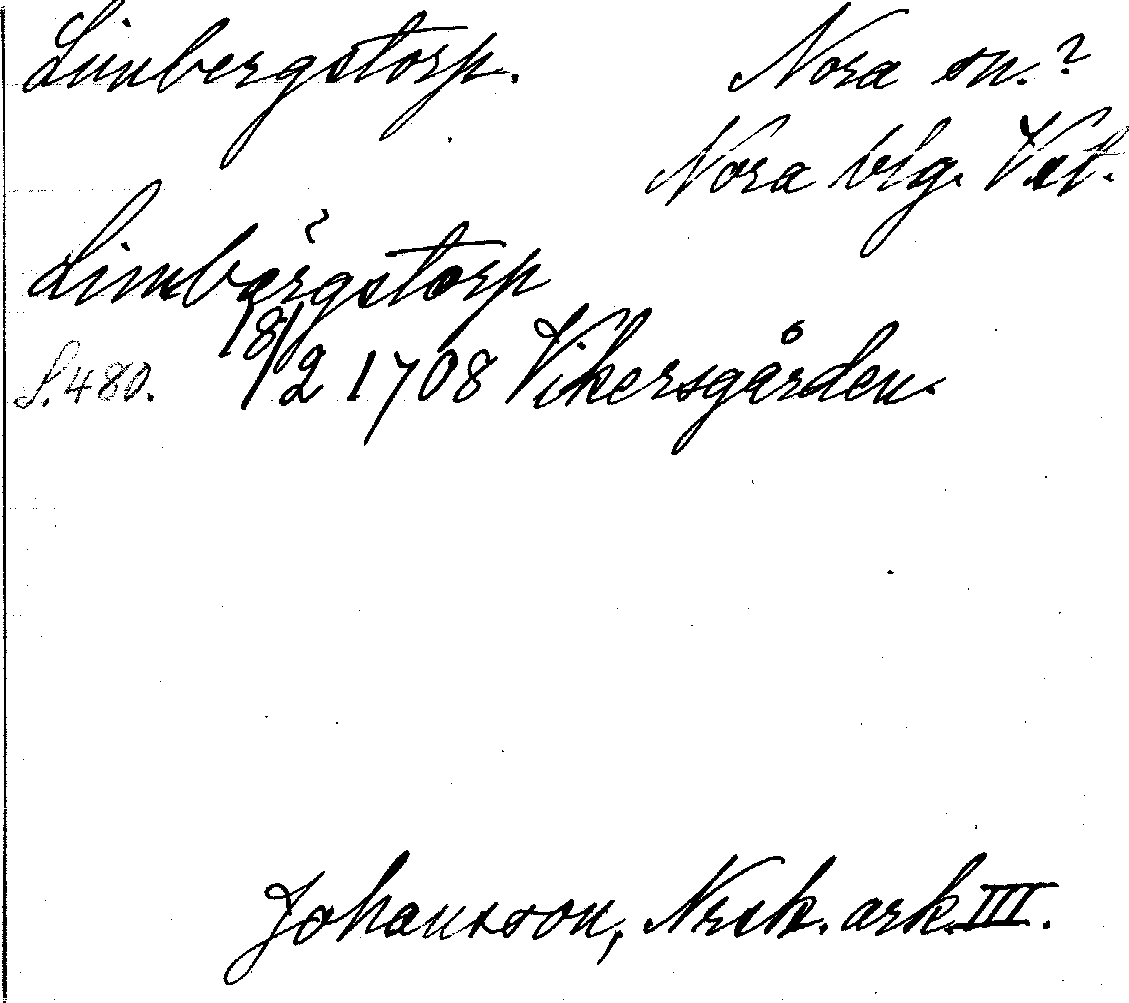 Limbergstorp. Nora sn.?
Nora blg. Vstl.
Limbärgstorp
S. 480. 18/2 1708 Vikersgården.
Johansson, Nrsk. ark. III.